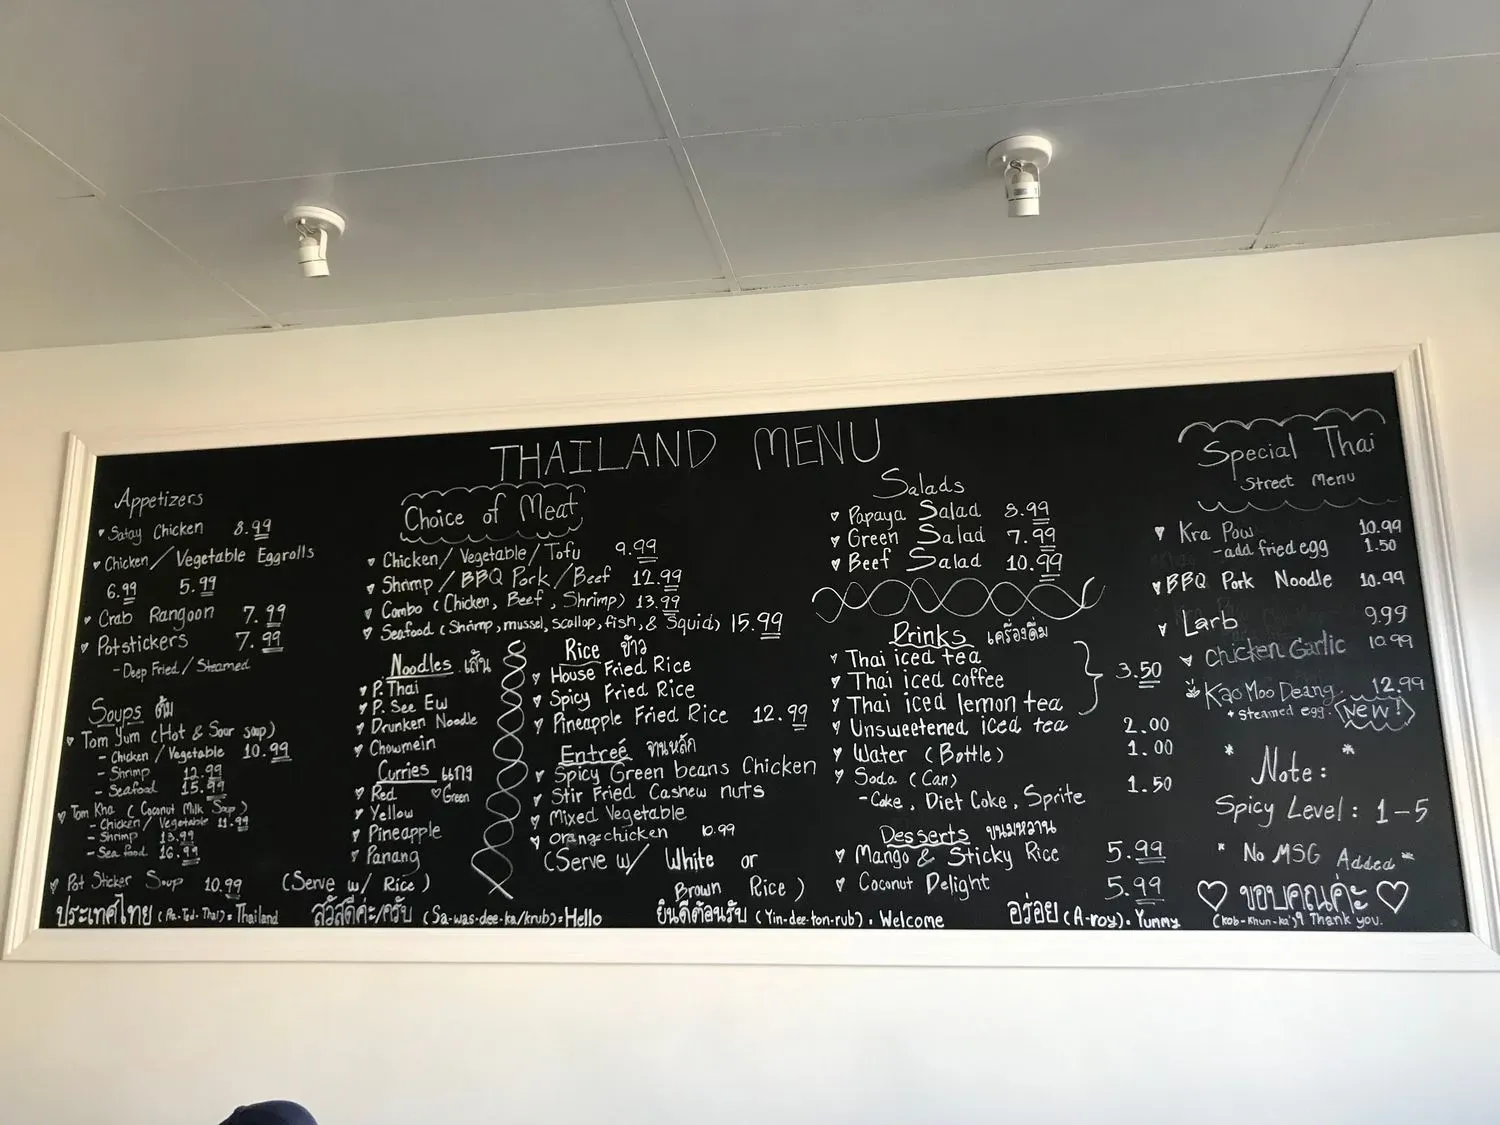 THAILAND MENU
Appetizers
Satay Chicken 8.99
Chicken/Vegetable Eggrolls
6.99 5.99
Crab Rangoon 7.99
Potstickers 7.99
-Deep Fried/Steamed
Soups ต้ม
Tom Yum (Hot & Sour soup)
- Chicken/Vegetable 10.99
- Shrimp 12.99
- Seafood 15.99
Tom Kha (Coconut Milk Soup)
- Chicken/Vegetable 11.99
- Shrimp 13.99
- Sea food 16.99
Pot Sticker Soup 10.99
Choice of Meat
Chicken/Vegetable/Tofu 9.99
Shrimp/BBQ Pork/Beef 12.99
Combo (Chicken, Beef, Shrimp) 13.99
Seafood (Shrimp, mussel, scallop, fish, & squid) 15.99
Noodles เส้น
P. Thai
P. See Ew
Drunken Noodle
Chowmein
Curries แกง
Red Green
Yellow
Pineapple
Panang
(Serve w/ Rice)
Rice ข้าว
House Fried Rice
Spicy Fried Rice
Pineapple Fried Rice 12.99
Entreé จานหลัก
Spicy Green beans Chicken
Stir Fried Cashew nuts
Mixed Vegetable
orange chicken 10.99
(Serve w/ White or
Brown Rice)
Salads
Papaya Salad 8.99
Green Salad 7.99
Beef Salad 10.99
Drinks เครื่องดื่ม
Thai iced tea
Thai iced coffee 3.50
Thai iced lemon tea
Unsweetened iced tea 2.00
Water (Bottle) 1.00
Soda (Can) 1.50
-Coke, Diet Coke, Sprite
Desserts ขนมหวาน
Mango & Sticky Rice 5.99
Coconut Delight 5.99
Special Thai
Street Menu
Kra Pow 10.99
-add fried egg 1.50
BBQ Pork Noodle 10.99
Larb 9.99
Chicken Garlic 10.99
Kao Moo Deang 12.99
+ steamed egg. New!
* Note: *
Spicy Level: 1-5
* No MSG Added *
ขอบคุณค่ะ
(kob-khun-ka) Thank you.
ประเทศไทย = Thailand
สวัสดีค่ะ/ครับ (Sa-was-dee-ka/krub) = Hello
ยินดีต้อนรับ (Yin-dee-ton-rub). Welcome
อร่อย (A-roy). Yummy